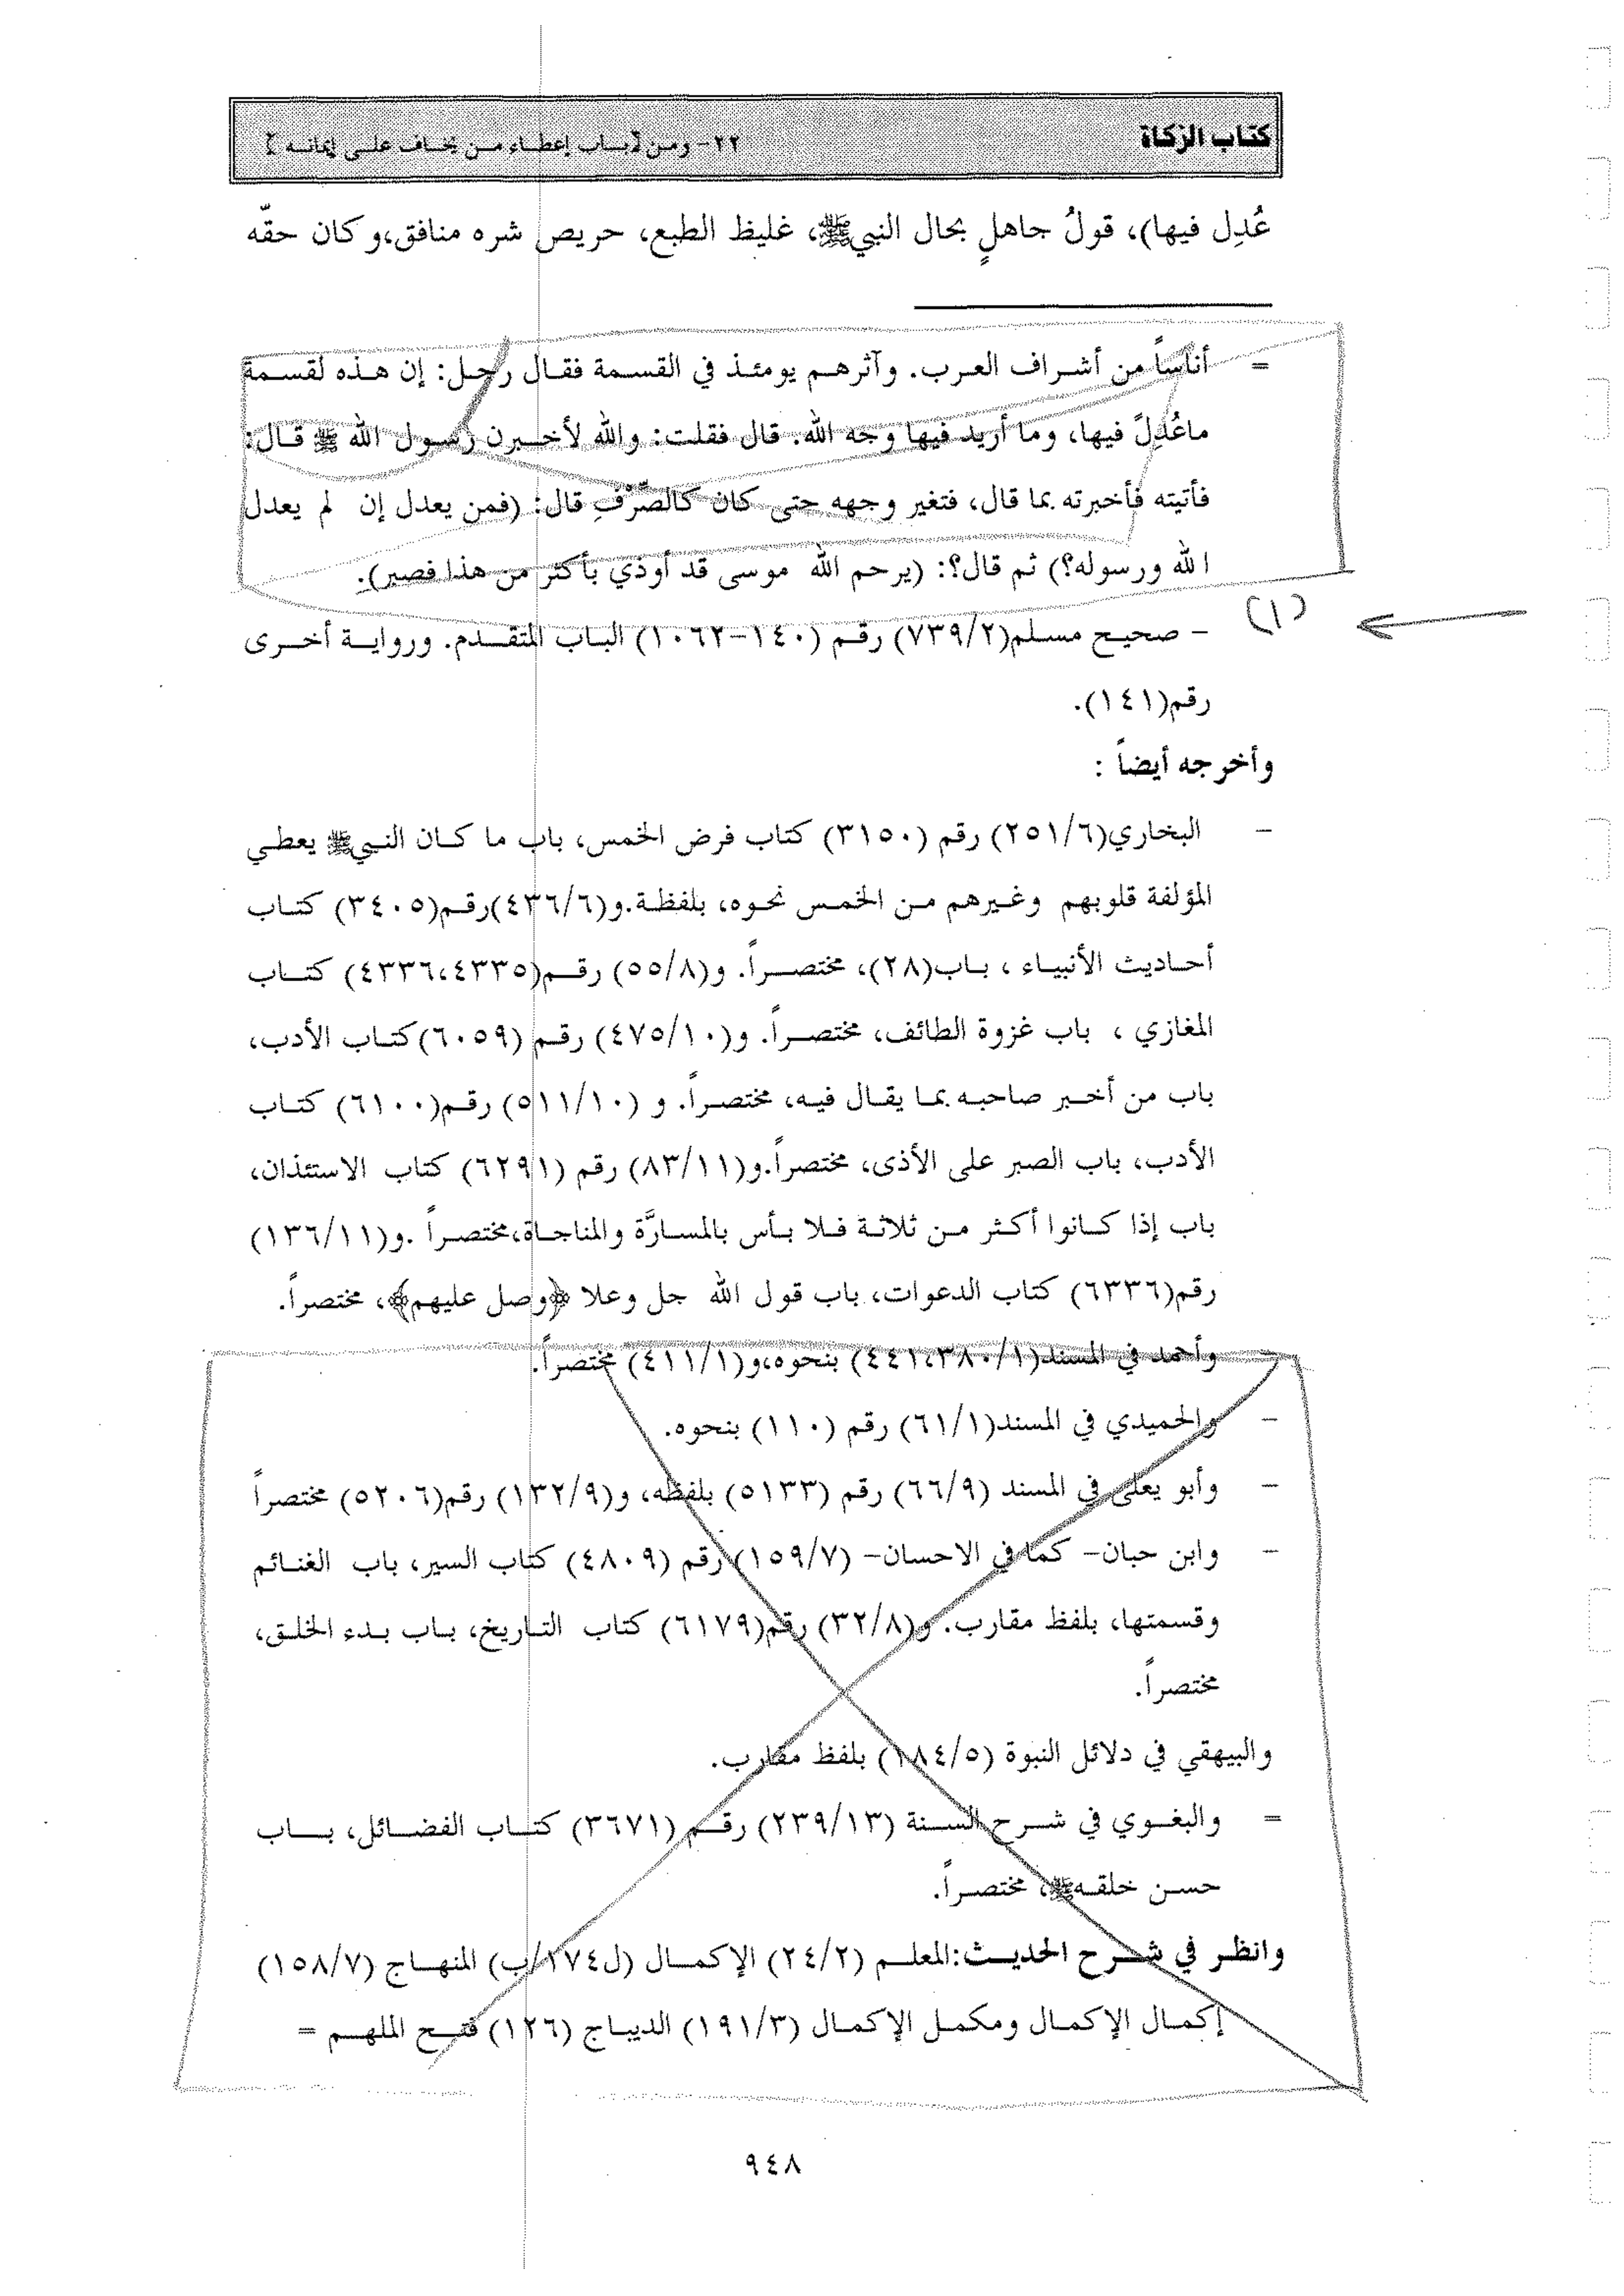 كتاب الزكاة
٢٢- ومن [باب إعطاء من يخاف على إيمانه]
عُدِل فيها)، قولُ جاهلٍ بحال النبيﷺ، غليظ الطبع، حريص شره منافق،وكان حقّه
= أناساً من أشراف العرب. وآثرهم يومئذ في القسمة فقال رجل: إن هذه لقسمة
ماعُدِلَ فيها، وما أريد فيها وجه الله. قال فقلت: والله لأخبرن رسول الله ﷺ قال:
فأتيته فأخبرته بما قال، فتغير وجهه حتى كان كالصِّرْفِ قال: (فمن يعدل إن لم يعدل
الله ورسوله؟) ثم قال؟: (يرحم الله موسى قد أوذي بأكثر من هذا فصبر).
(١) - صحيح مسلم(٧٣٩/٢) رقم (١٤٠-١٠٦٢) الباب المتقدم. ورواية أخرى
رقم(١٤١).
وأخرجه أيضاً :
- البخاري(٢٥١/٦) رقم (٣١٥٠) كتاب فرض الخمس، باب ما كان النبيﷺ يعطي
المؤلفة قلوبهم وغيرهم من الخمس نحوه، بلفظة.و(٤٣٦/٦)رقم(٣٤٠٥) كتاب
أحاديث الأنبياء ، باب(٢٨)، مختصراً. و(٥٥/٨) رقم(٤٣٣٦،٤٣٣٥) كتاب
المغازي ، باب غزوة الطائف، مختصراً. و(٤٧٥/١٠) رقم (٦٠٥٩)كتاب الأدب،
باب من أخبر صاحبه بما يقال فيه، مختصراً. و (٥١١/١٠) رقم(٦١٠٠) كتاب
الأدب، باب الصبر على الأذى، مختصراً.و(٨٣/١١) رقم (٦٢٩١) كتاب الاستئذان،
باب إذا كانوا أكثر من ثلاثة فلا بأس بالمسارَّة والمناجاة،مختصراً .و(١٣٦/١١)
رقم(٦٣٣٦) كتاب الدعوات، باب قول الله جل وعلا ﴿وصل عليهم﴾، مختصراً.
وأحمد في المسند(٤٤١،٣٨٠/١) بنحوه،و(٤١١/١) مختصراً.
- والحميدي في المسند(٦١/١) رقم (١١٠) بنحوه.
- وأبو يعلى في المسند (٦٦/٩) رقم (٥١٣٣) بلفظه، و(١٣٢/٩) رقم(٥٢٠٦) مختصراً
- وابن حبان- كما في الاحسان- (١٥٩/٧) رقم (٤٨٠٩) كتاب السير، باب الغنائم
وقسمتها، بلفظ مقارب. و(٣٢/٨) رقم(٦١٧٩) كتاب التاريخ، باب بدء الخلق،
مختصراً.
والبيهقي في دلائل النبوة (١٨٤/٥) بلفظ مقارب.
= والبغوي في شرح السنة (٢٣٩/١٣) رقم (٣٦٧١) كتاب الفضائل، باب
حسن خلقهﷺ، مختصراً.
وانظر في شرح الحديث:المعلم (٢٤/٢) الإكمال (ل١٧٤/ب) المنهاج (١٥٨/٧)
إكمال الإكمال ومكمل الإكمال (١٩١/٣) الديباج (١٢٦) فتح الملهم =
٩٤٨